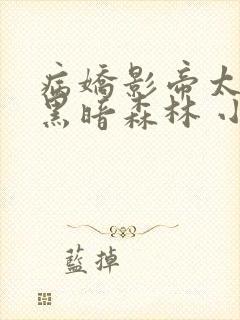 病嬌影帝太
黑暗森林 小
藍掉